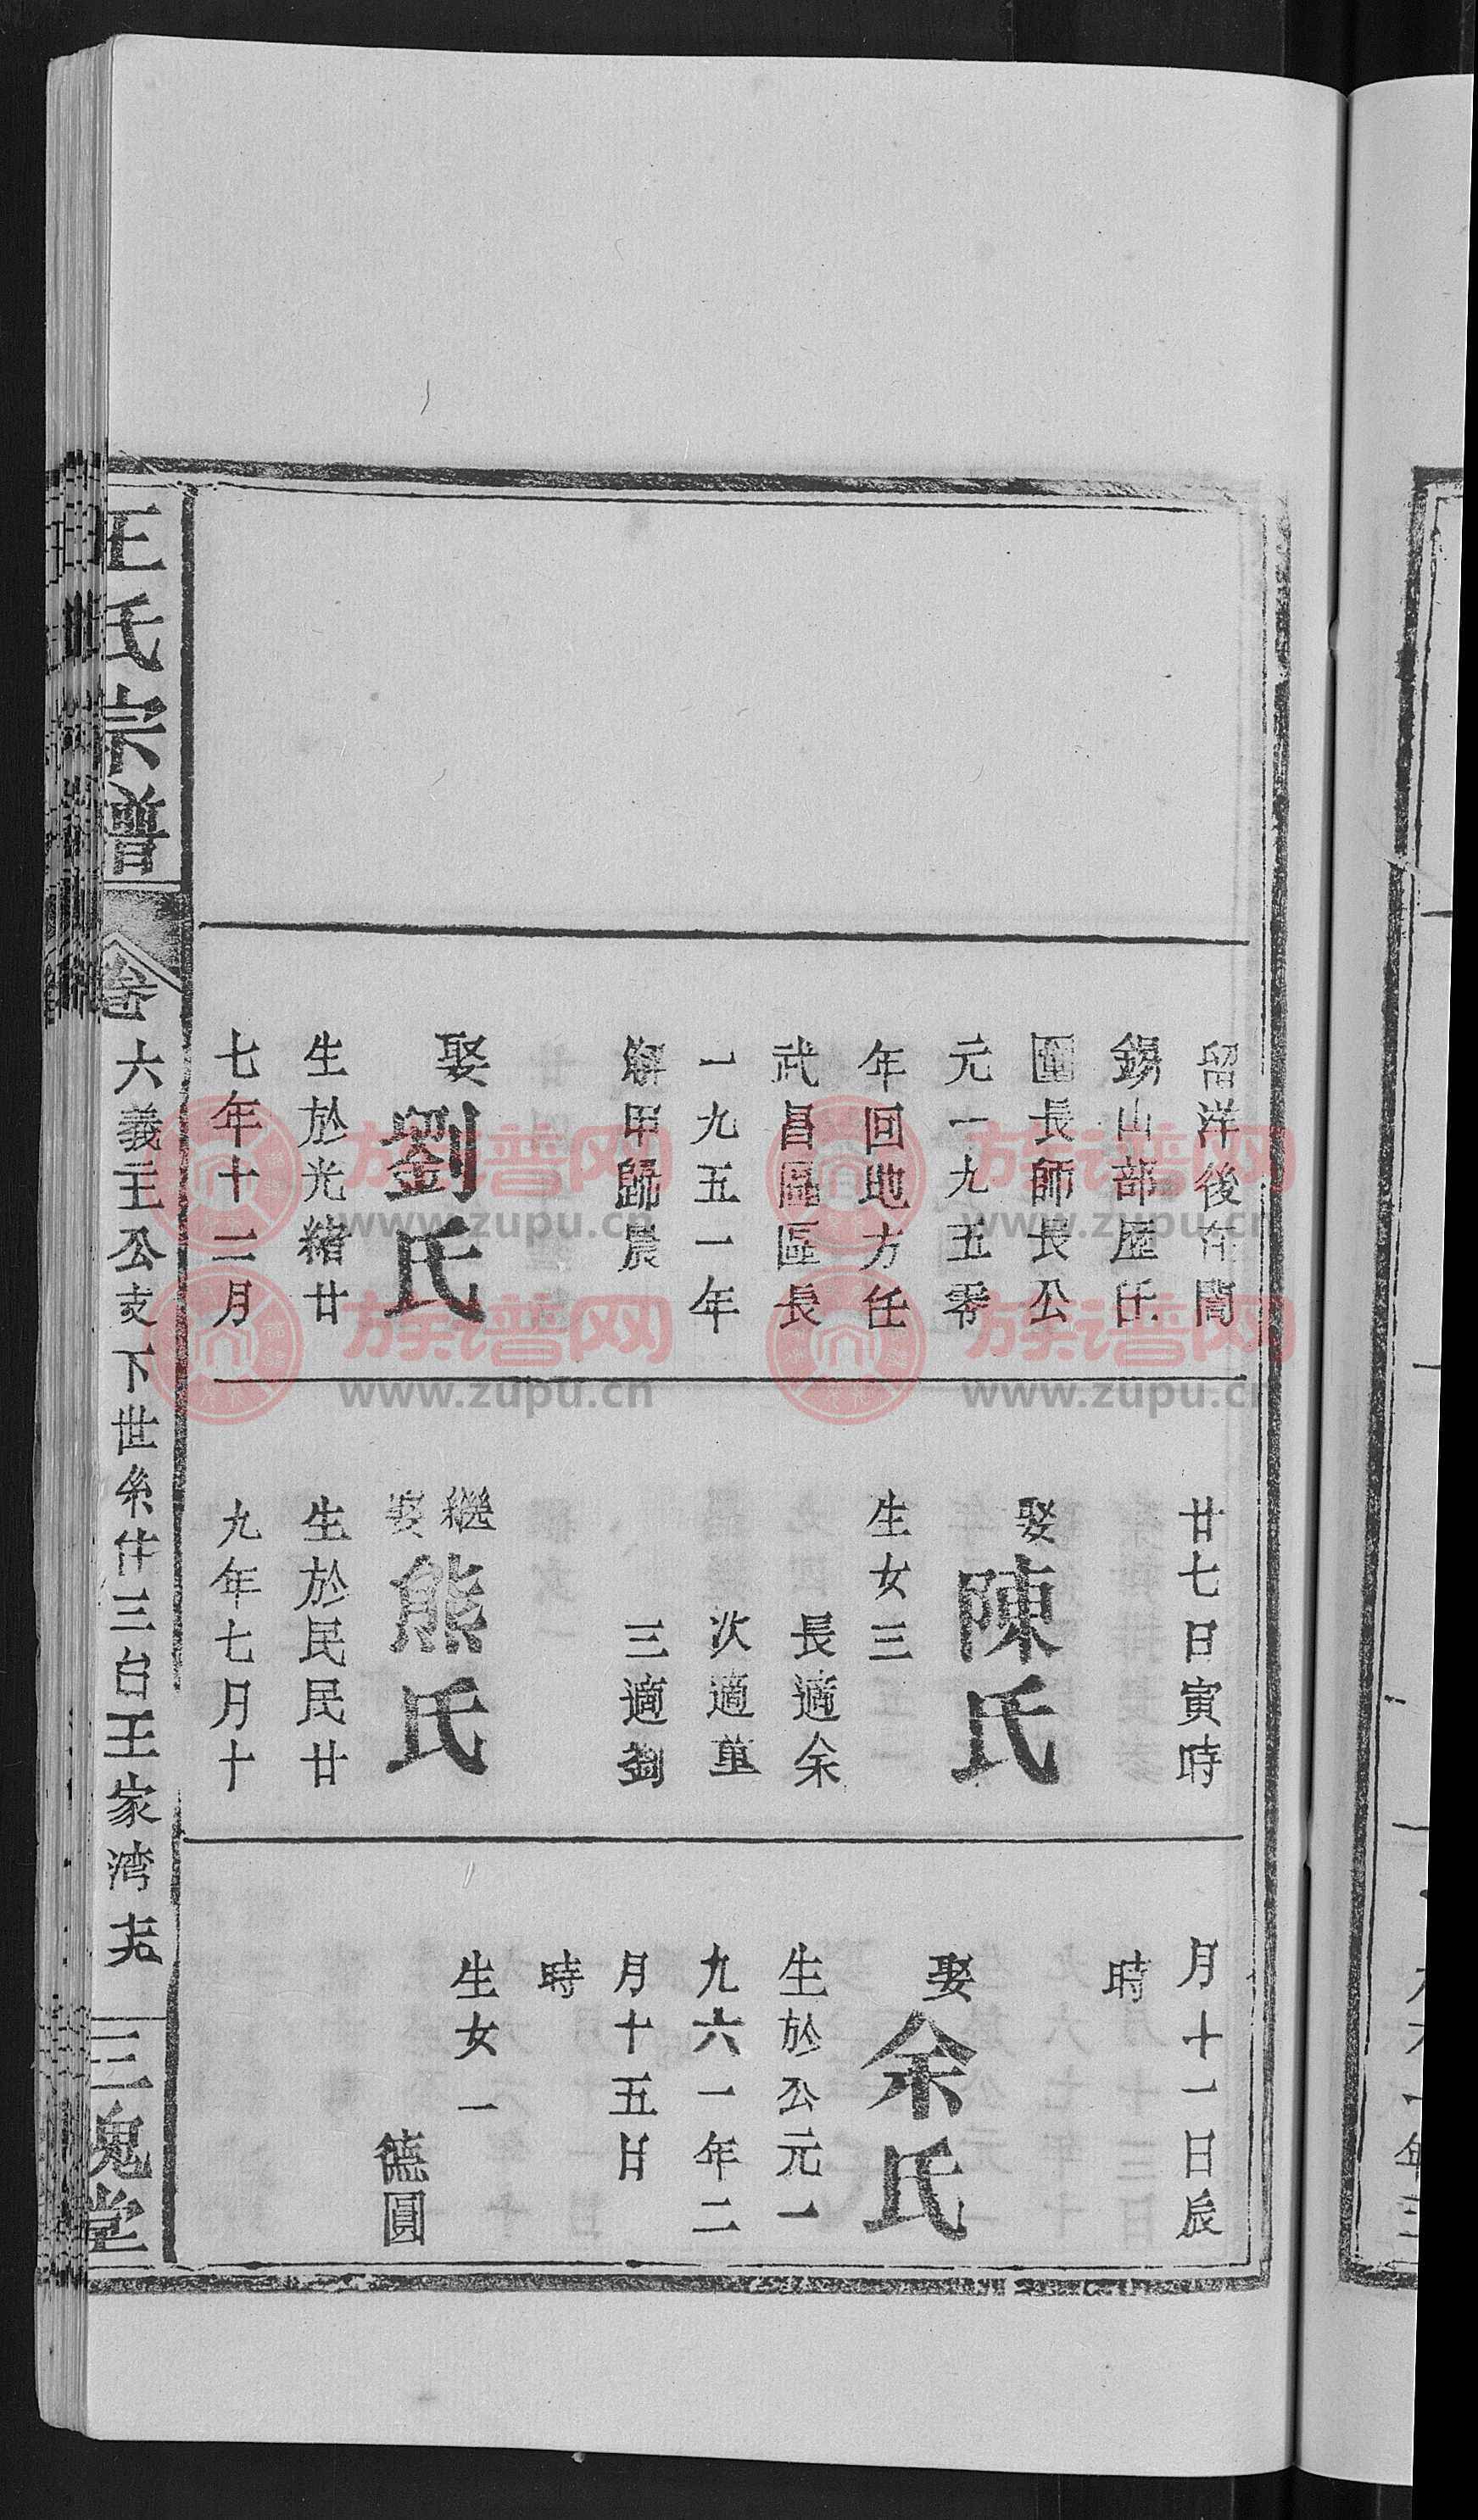 留洋後在閻
錫山部歷任
團長師長公
元一九五零
年回地方任
武昌區區長
一九五一年
解甲歸農
娶劉氏
生於光緒廿
七年十二月
廿七日寅時
娶陳氏
生女三
長適余
次適董
三適劉
繼娶熊氏
生於民民廿
九年七月十
月十一日辰
時
娶余氏
生於公元一
九六一年二
月十五日
時
生女一
德圓
王氏宗譜
卷六義主公支下世系仕三台王家湾
三槐堂
族谱网
www.zupu.cn
族谱网
www.zupu.cn
族谱网
www.zupu.cn
族谱网
www.zupu.cn